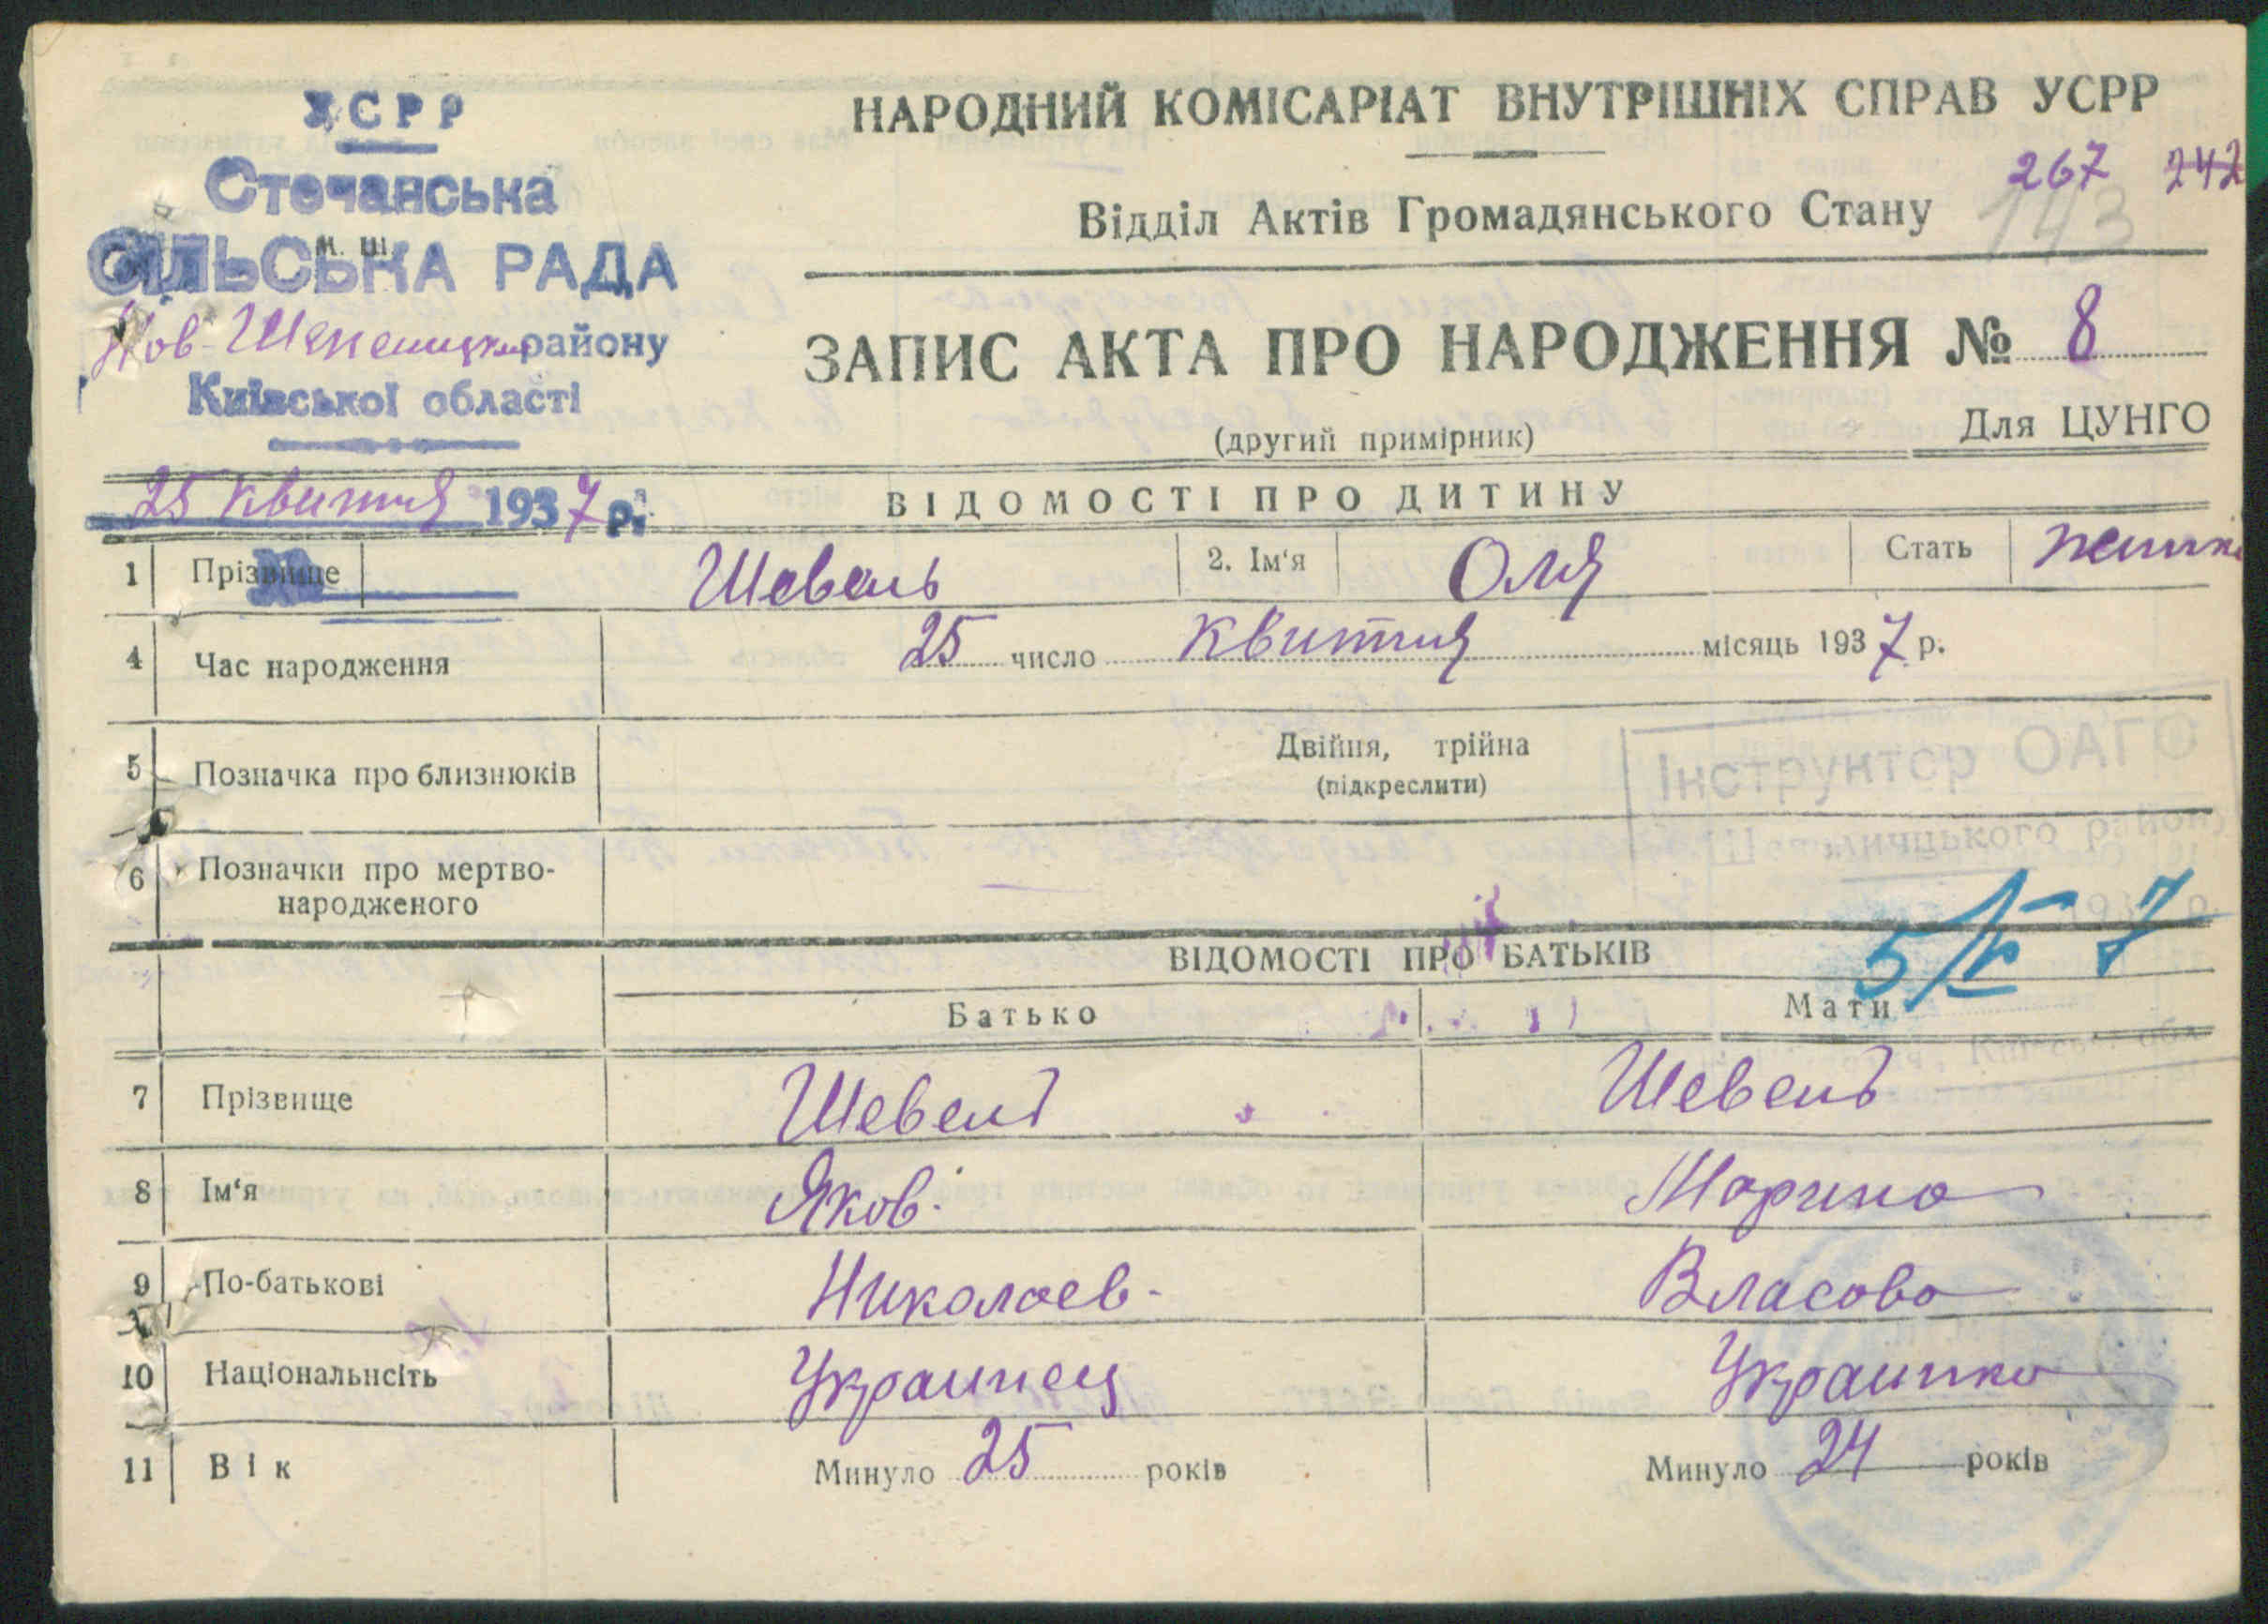 УСРР
Стечанська
СІЛЬСЬКА РАДА
М. Ш.
Нов-Шепелицьк району
Київської області
25 Квитня 1937 р.
НАРОДНИЙ КОМІСАРІАТ ВНУТРІШНІХ СПРАВ УСРР
267 242
Відділ Актів Громадянського Стану 143
ЗАПИС АКТА ПРО НАРОДЖЕННЯ № 8
(другий примірник)
Для ЦУНГО
ВІДОМОСТІ ПРО ДИТИНУ
1 Прізвище Шевель 2. Ім'я Оля Стать
4 Час народження 25 число Квитня місяць 1937 р.
5 Позначка про близнюків Двійня, трійна
(підкреслити)
Інструктор ОАГС
району
6 Позначки про мертво-
народженого
5/V 7
ВІДОМОСТІ ПРО БАТЬКІВ
Батько Мати
7 Прізвище Шевель Шевель
8 Ім'я Яков. Марина
9 По-батькові Николаев- Власова
10 Національнсіть Украинец Украинка
11 Вік Минуло 25 років Минуло 24 років